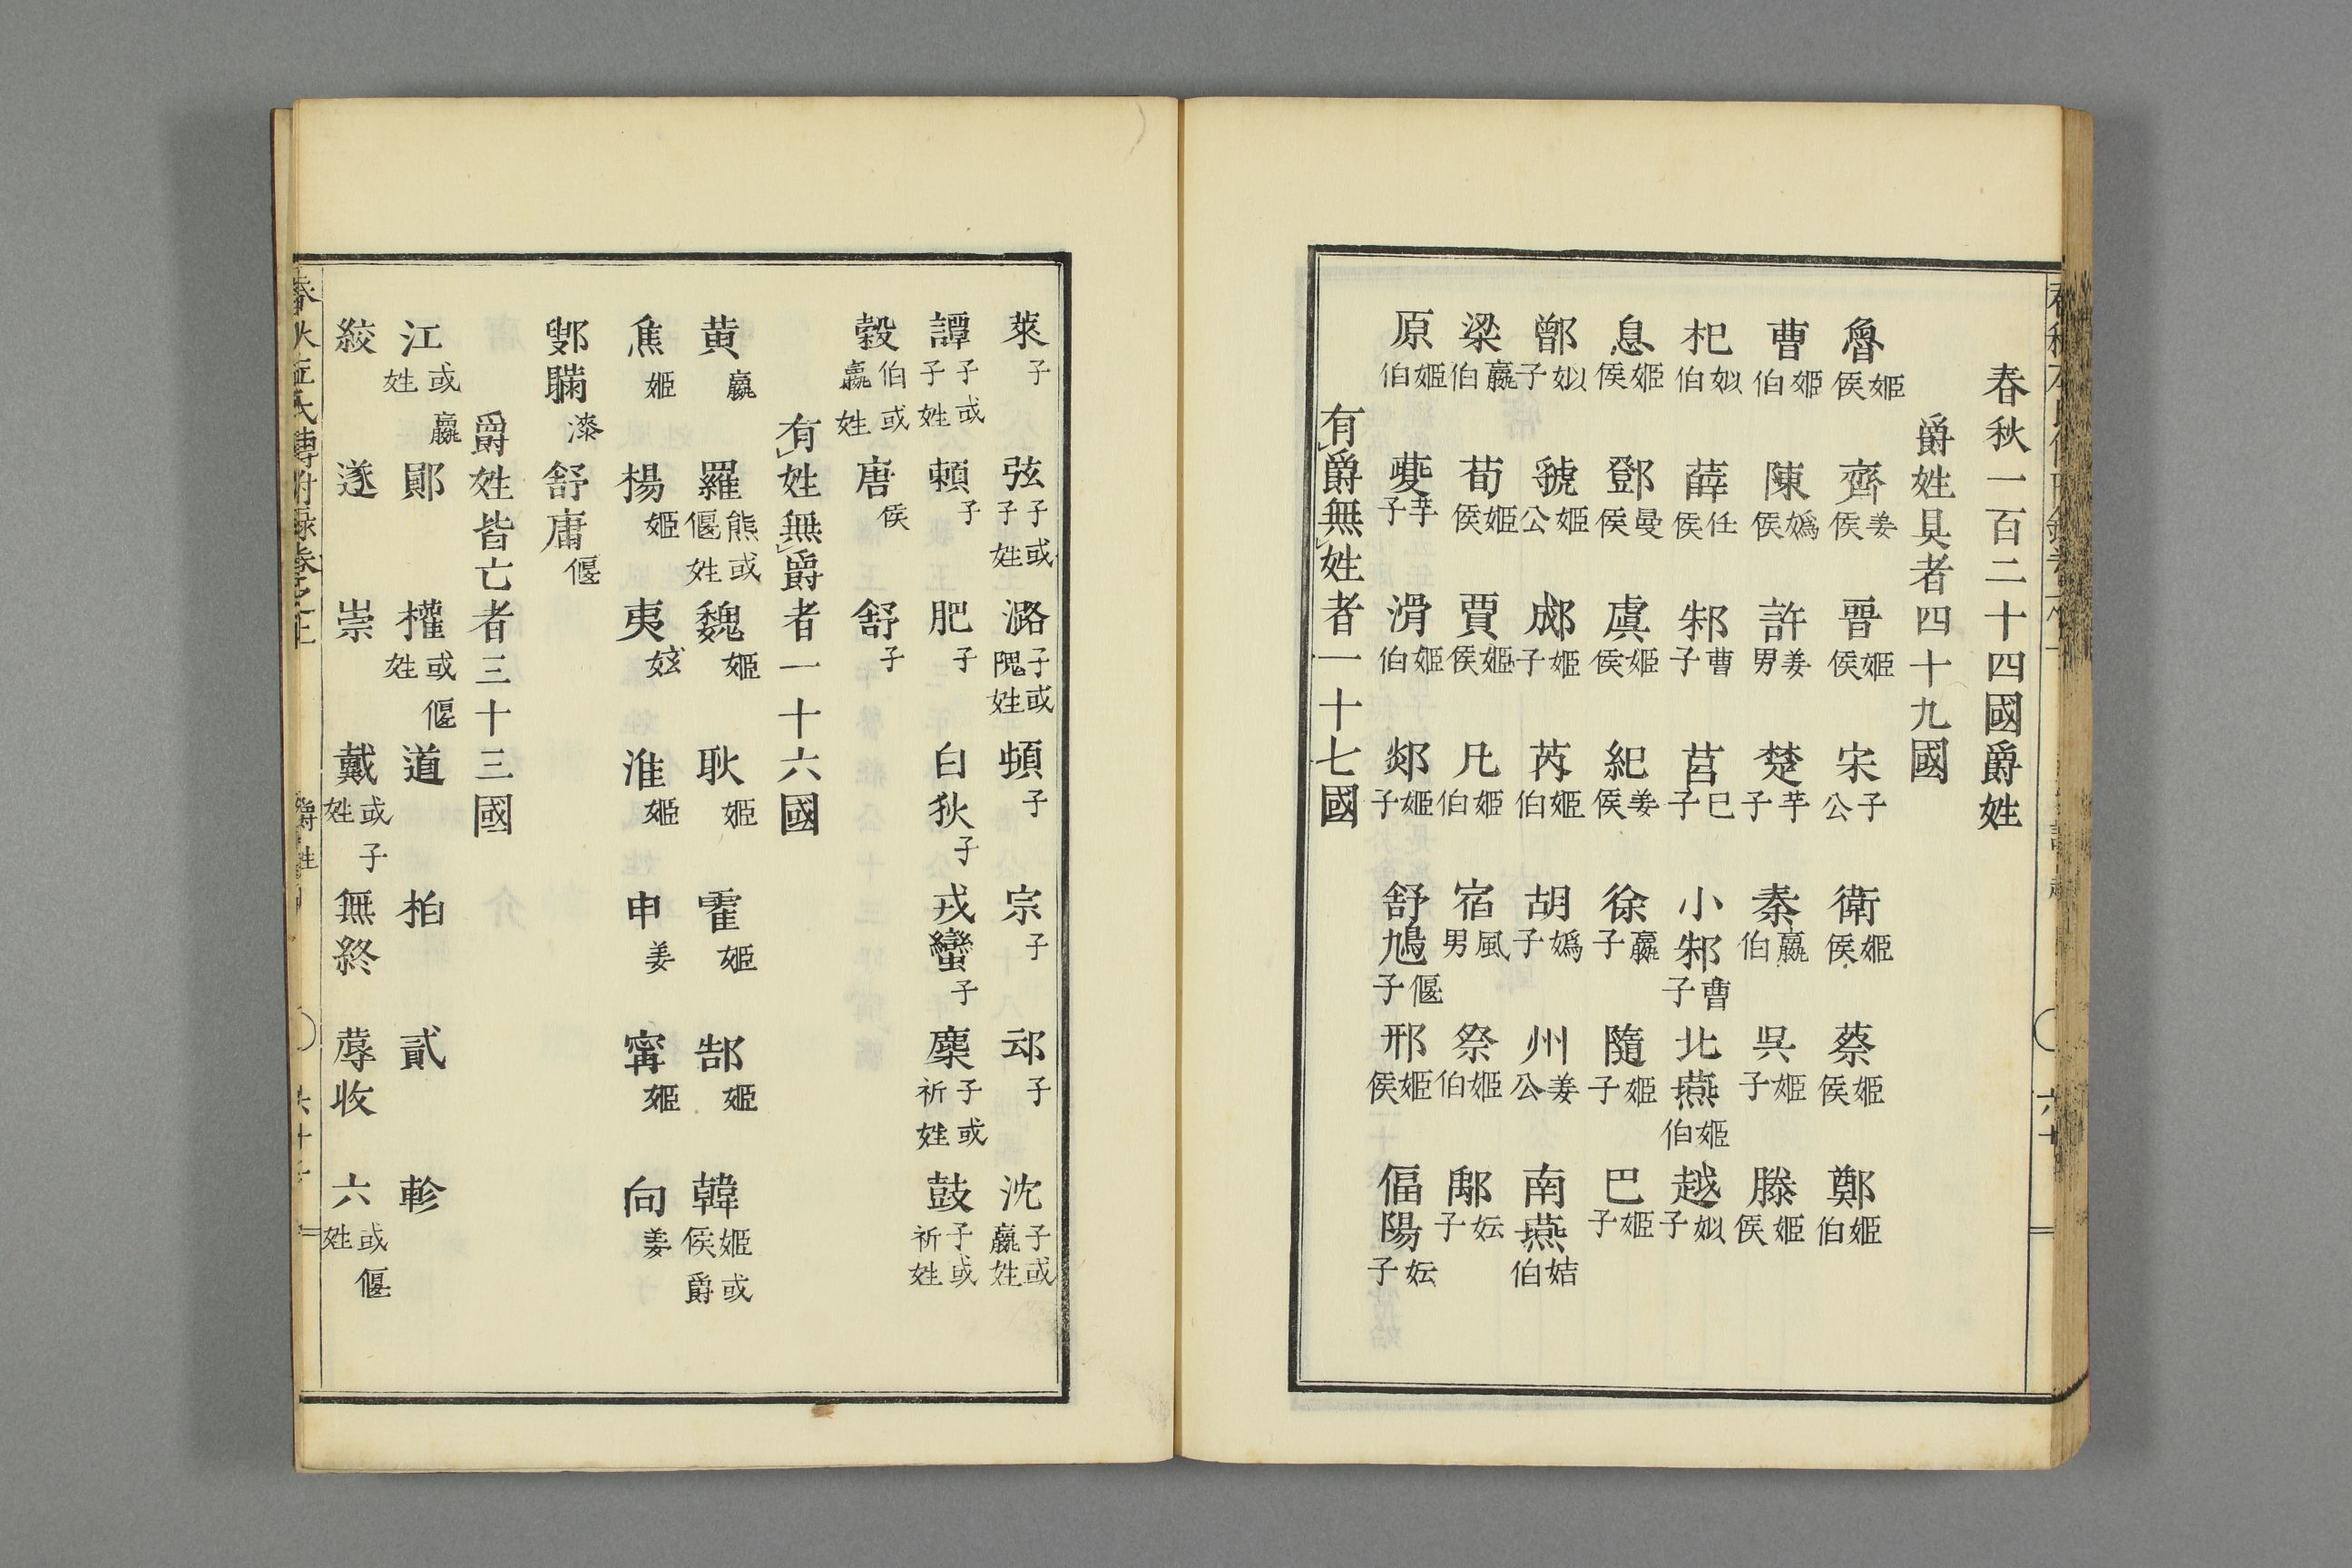 春秋一百二十四國爵姓
爵姓具者四十九國
魯姬侯 齊姜侯 晉姬侯 宋子公 衛姬侯 蔡姬侯 鄭姬伯
曹姬伯 陳媯侯 許姜男 楚芈子 秦嬴伯 吳姬子 滕姬侯
杞姒伯 薛任侯 邾曹子 莒巳子 小邾曹子 北燕姬伯 越姒子
息姬侯 鄧曼侯 虞姬侯 紀姜侯 徐嬴子 隨姬子 巴姬子
鄫姒子 虢姬公 郕姬子 芮姬伯 胡媯子 州姜公 南燕姞伯
梁嬴伯 荀姬侯 賈姬侯 凡姬伯 宿風男 祭姬伯 鄅妘子
原姬伯 夔芈子 滑姬伯 郯姬子 舒鳩偃子 邢姬侯 偪陽妘子
有爵無姓者一十七國
萊子 弦子或子姓 潞子或隗姓 頓子 宗子 䢵子 沈子或嬴姓
譚子或子姓 賴子 肥子 白狄子 戎蠻子 麇子或祈姓 鼓子或祈姓
穀伯或嬴姓 唐侯 舒子
有姓無爵者一十六國
黃嬴 羅熊或偃姓 魏姬 耿姬 霍姬 郜姬 韓姬或侯爵
焦姬 揚姬 夷妘 淮姬 申姜 甯姬 向姜
鄋瞞漆 舒庸偃
爵姓皆亡者三十三國
江或嬴姓 鄖 權或偃姓 道 柏 貳 軫
絞 遂 崇 戴或子姓 無終 蓐收 六或偃姓